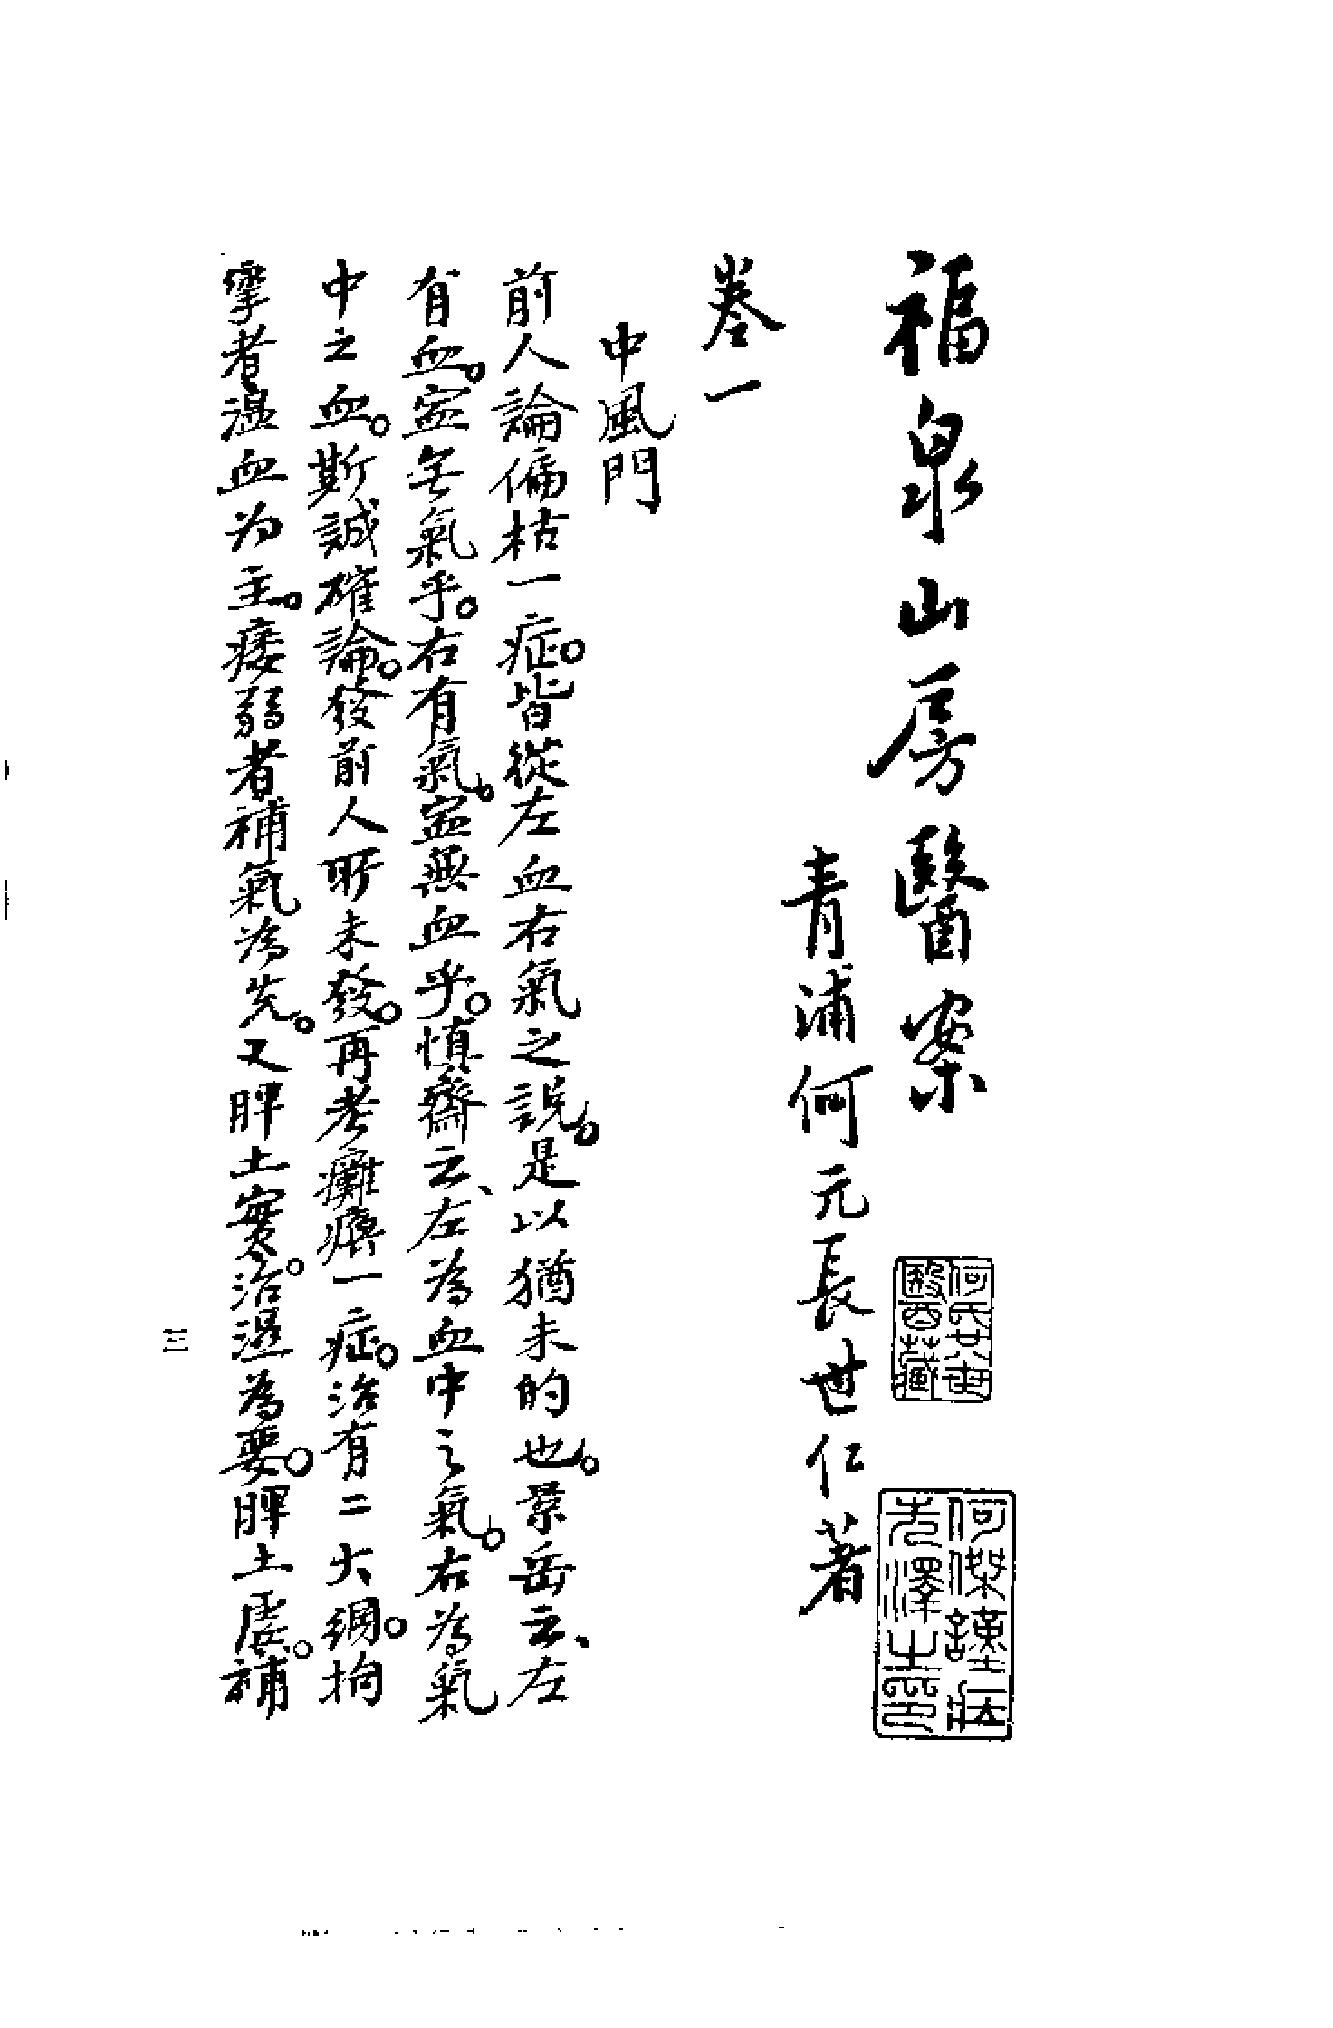 福泉山房醫案
何氏廿世醫藏
何傑謹莊光澤之印
青浦何元長世仁著
卷一
中風門
前人論偏枯一症。皆從左血右氣之說。是以猶未的也。景岳云、左
有血。寍無氣乎。右有氣。寍無血乎。慎齋云、左為血中之氣。右為氣
中之血。斯誠確論。發前人所未發。再考癱瘓一症。治有二大綱。拘
挛者溫血为主。痿弱者補氣為先。又脾土寔。治濕為要。脾土虛。補
三